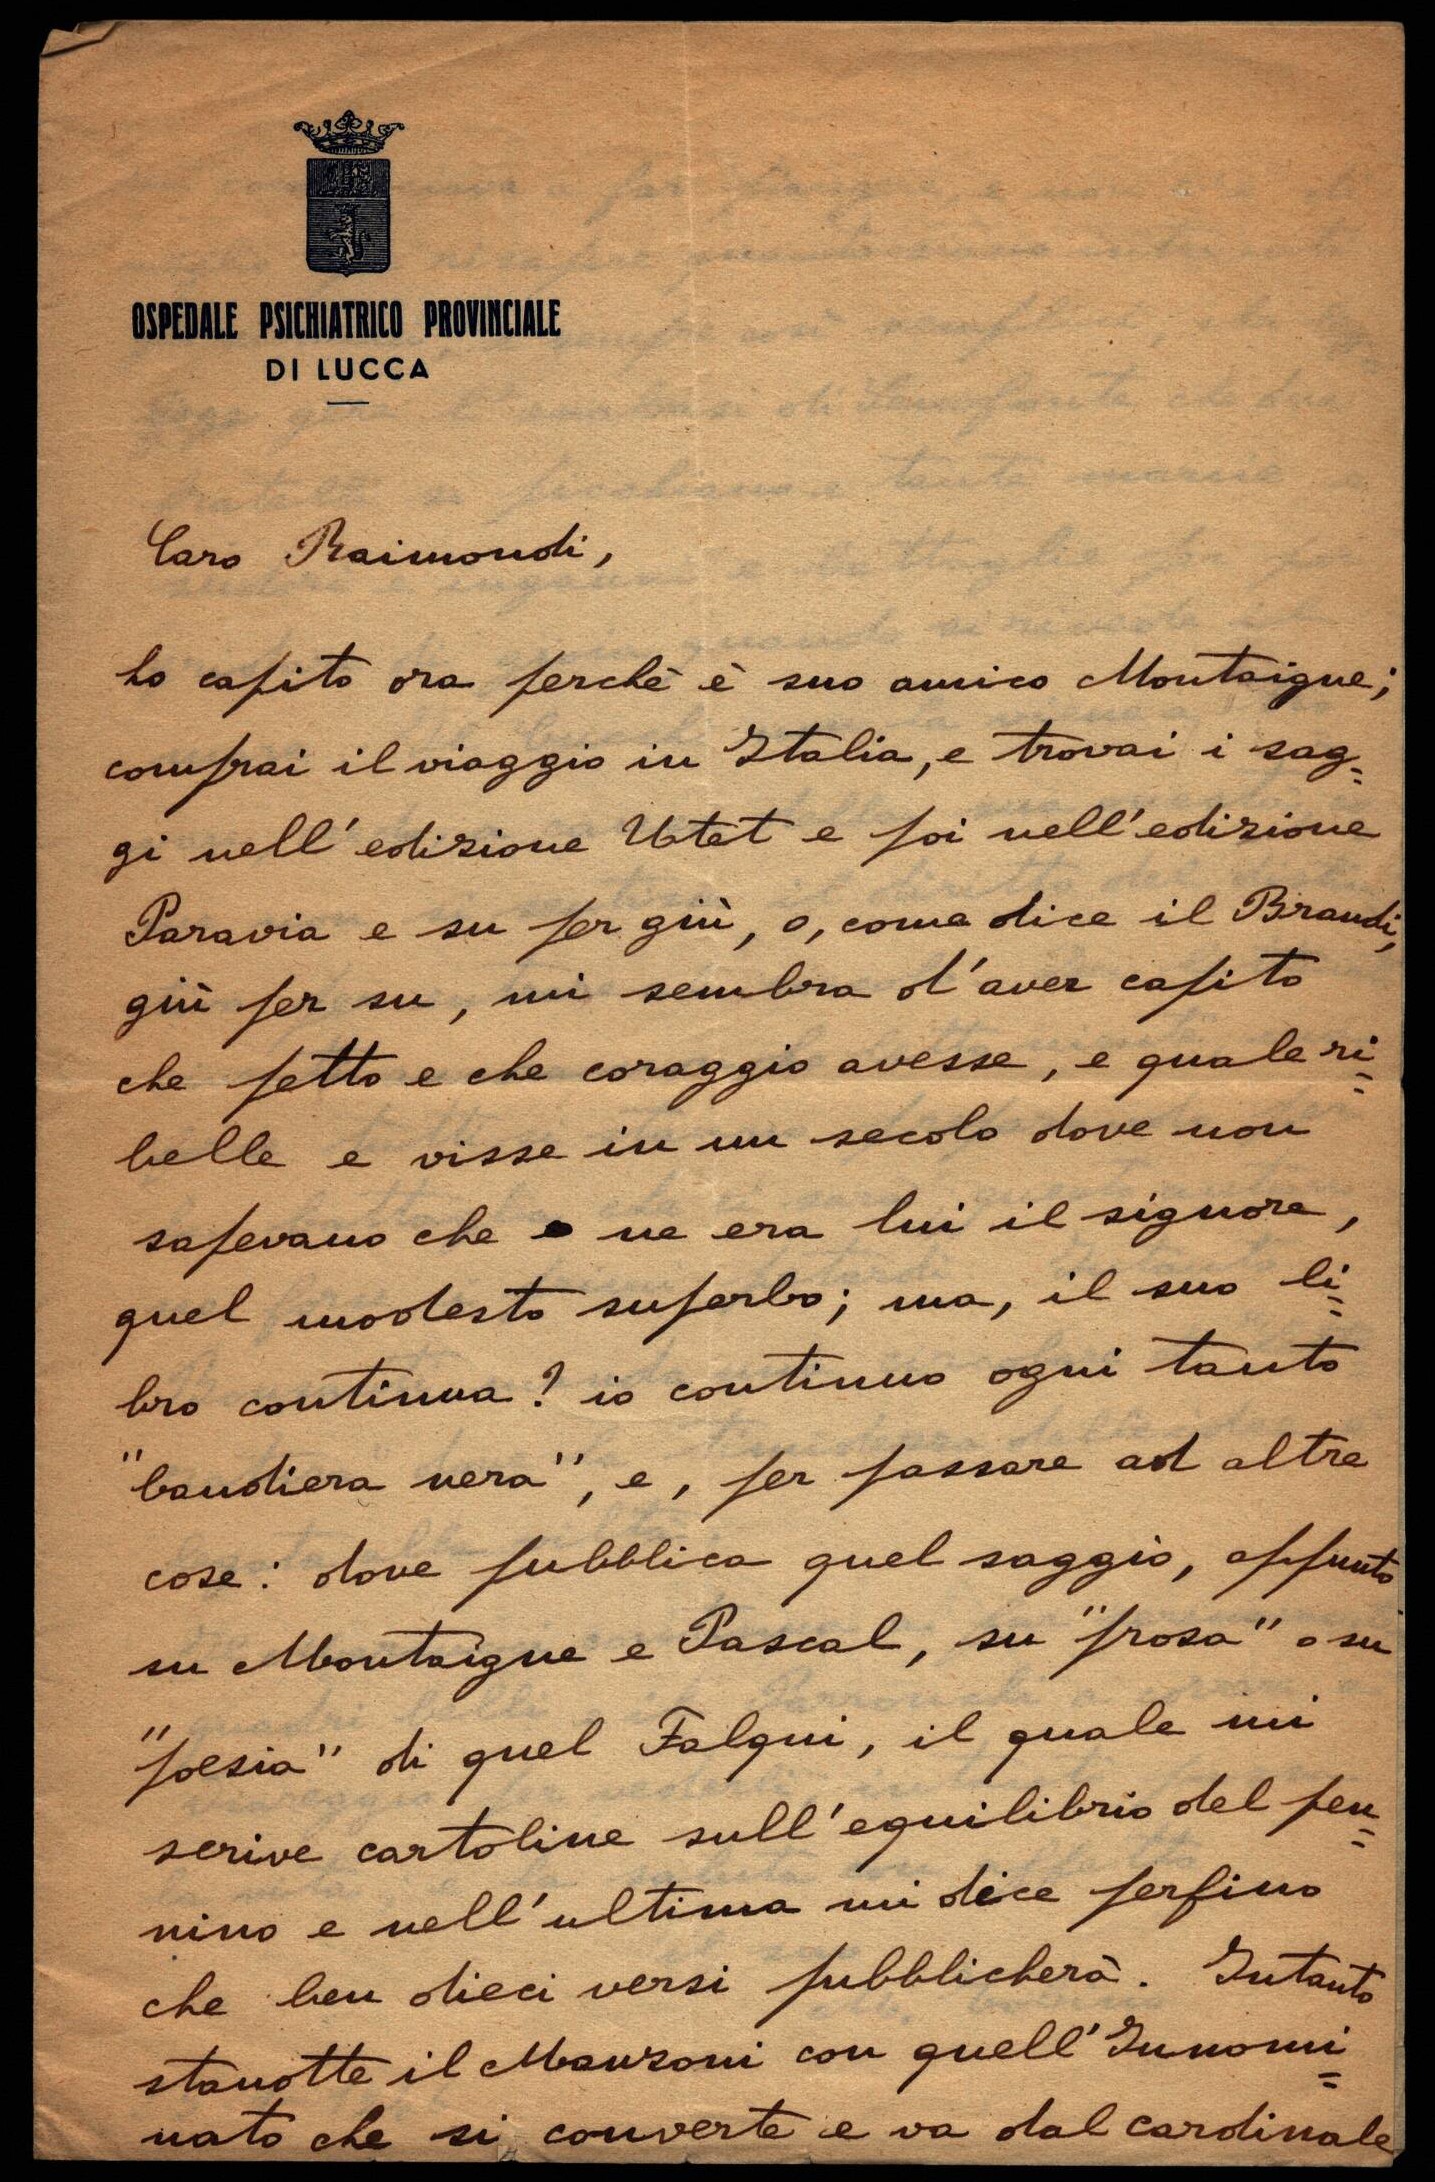 OSPEDALE PSICHIATRICO PROVINCIALE
DI LUCCA
Caro Raimondi,
ho capito ora perchè è suo amico Montaigne;
comprai il viaggio in Italia, e trovai i sag=
gi nell'edizione Utet e poi nell'edizione
Paravia e su per giù, o, come dice il Brandi,
giù per su, mi sembra d'aver capito
che petto e che coraggio avesse, e quale ri=
belle e visse in un secolo dove non
sapevano che ne era lui il signore,
quel modesto superbo; ma, il suo li=
bro continua? io continuo ogni tanto
"bandiera nera", e, per passare ad altre
cose: dove pubblica quel saggio, appunto
su Montaigne e Pascal, su "prosa" o su
"poesia" di quel Falqui, il quale mi
scrive cartoline sull'equilibrio del pen=
nino e nell'ultima mi dice perfino
che ben dieci versi pubblicherà. Intanto
stanotte il Manzoni con quell'Innomi=
nato che si converte e va dal cardinale